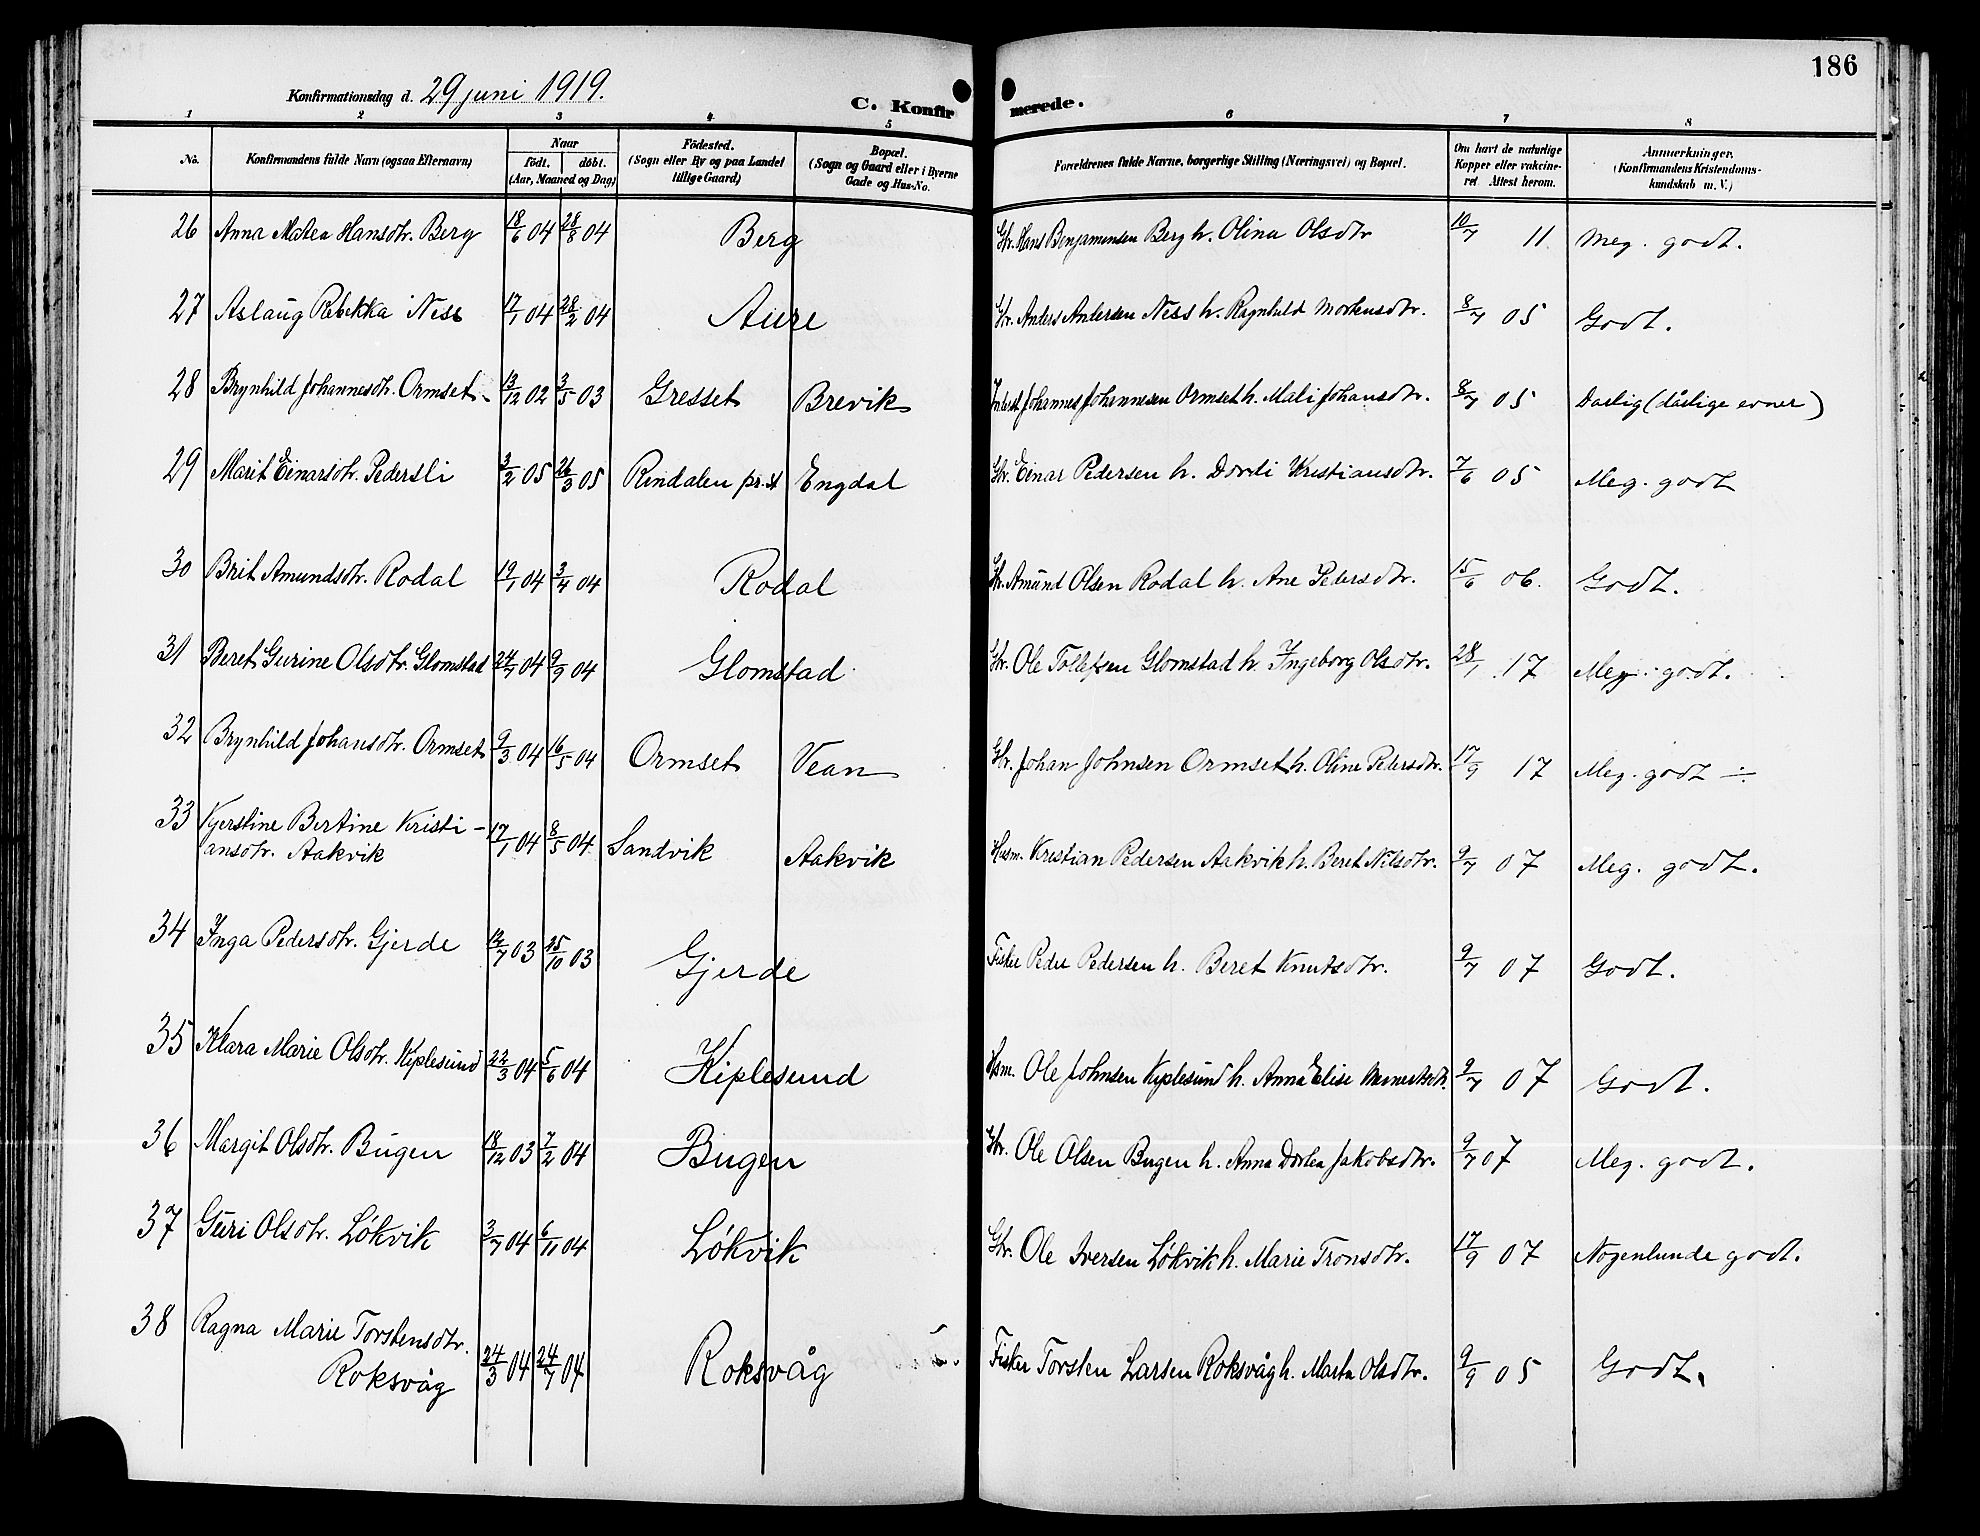 186
Konfirmationsdag d. 29 juni 1919.
C. Konfirmerede.
1 2 3 4 5 6 7 8
No. | Konfirmandens fulde Navn (ogsaa Efternavn) | Naar født. døbt. (Aar, Maaned og Dag) | Fødested. (Sogn eller By og paa Landet tillige Gaard) | Bopæl. (Sogn og Gaard eller i Byerne Gade og Hus-No. | Forældrenes fulde Navne, borgerlige Stilling (Næringsvei) og Bopæl. | Om havt de naturlige Kopper eller vakcineret Attest herom. | Anmærkninger. (Konfirmandens Kristendomskundskab m. V.)
26 Anna Matea Hansdtr. Berg 18/6 04 28/8 04 Berg Gbr. Hans Benjaminsen Berg h. Olina Olsdtr 10/7 11 Meg. godt.
27 Aslaug Rebekka Ness 17/1 04 28/2 04 Aure Gbr. Anders Andersen Ness h. Ragnhild Mortensdtr. 8/7 05 Godt.
28 Brynhild Johannesdtr. Ormset 13/12 02 3/5 03 Gresset Brevik Inderst Johannes Johannesen Ormset h. Mali Johansdtr. 8/7 05 Daarlig (dårlige evner)
29 Marit Einarsdtr. Pedersli 3/2 05 26/3 05 Rindalen pr.st Engdal Gbr. Einar Pedersen h. Dordi Kristiansdtr. 7/6 05 Meg. godt
30 Brit Amundsdtr. Rodal 19/1 04 3/4 04 Rodal Gbr. Amund Olsen Rodal h. Ane Petersdtr. 15/6 06. Godt.
31 Beret Gurine Olsdtr. Glomstad 24/7 04 9/9 04 Glomstad Gbr. Ole Tollefsen Glomstad h. Ingeborg Olsdtr. 28/1 17 Meg. godt.
32 Brynhild Johansdtr. Ormset 9/3 04 16/5 04 Ormset Vean Gbr. Johan Johnsen Ormset h. Oline Petersdtr. 17/9 17 Meg. godt ÷
33 Kjerstine Bertine Kristi-
ansdtr. Aakvik 17/1 04 8/5 04 Sandvik Aakvik Husm. Kristian Pedersen Aakvik h. Beret Nilsdtr. 9/7 07 Meg. godt.
34 Inga Pedersdtr. Gjerde 12/7 03 25/10 03 Gjerde Fisker Peder Pedersen h. Beret Knutsdtr. 9/7 07 Godt.
35 Klara Marie Olsdtr. Kiplesund 22/3 04 5/6 04 Kiplesund Hsm. Ole Johnsen Kiplesund h. Anna Elise 9/7 07 Godt.
36 Margit Olsdtr. Bugen 18/12 03 7/2 04 Bugen Gbr. Ole Olsen Bugen h. Anna Dortea Jakobsdtr. 9/7 07 Meg. godt.
37 Guri Olsdtr. Løkvik 3/7 04 6/11 04 Løkvik Gbr. Ole Iversen Løkvik h. Marie Tronsdtr. 17/9 07 Nogenlunde godt.
38 Ragna Marie Torstensdtr.
Roksvåg 24/3 04 24/7 04 Roksvåg Fisker Torsten Larsen Roksvåg h. Marta Olsdtr. 9/9 05 Godt.